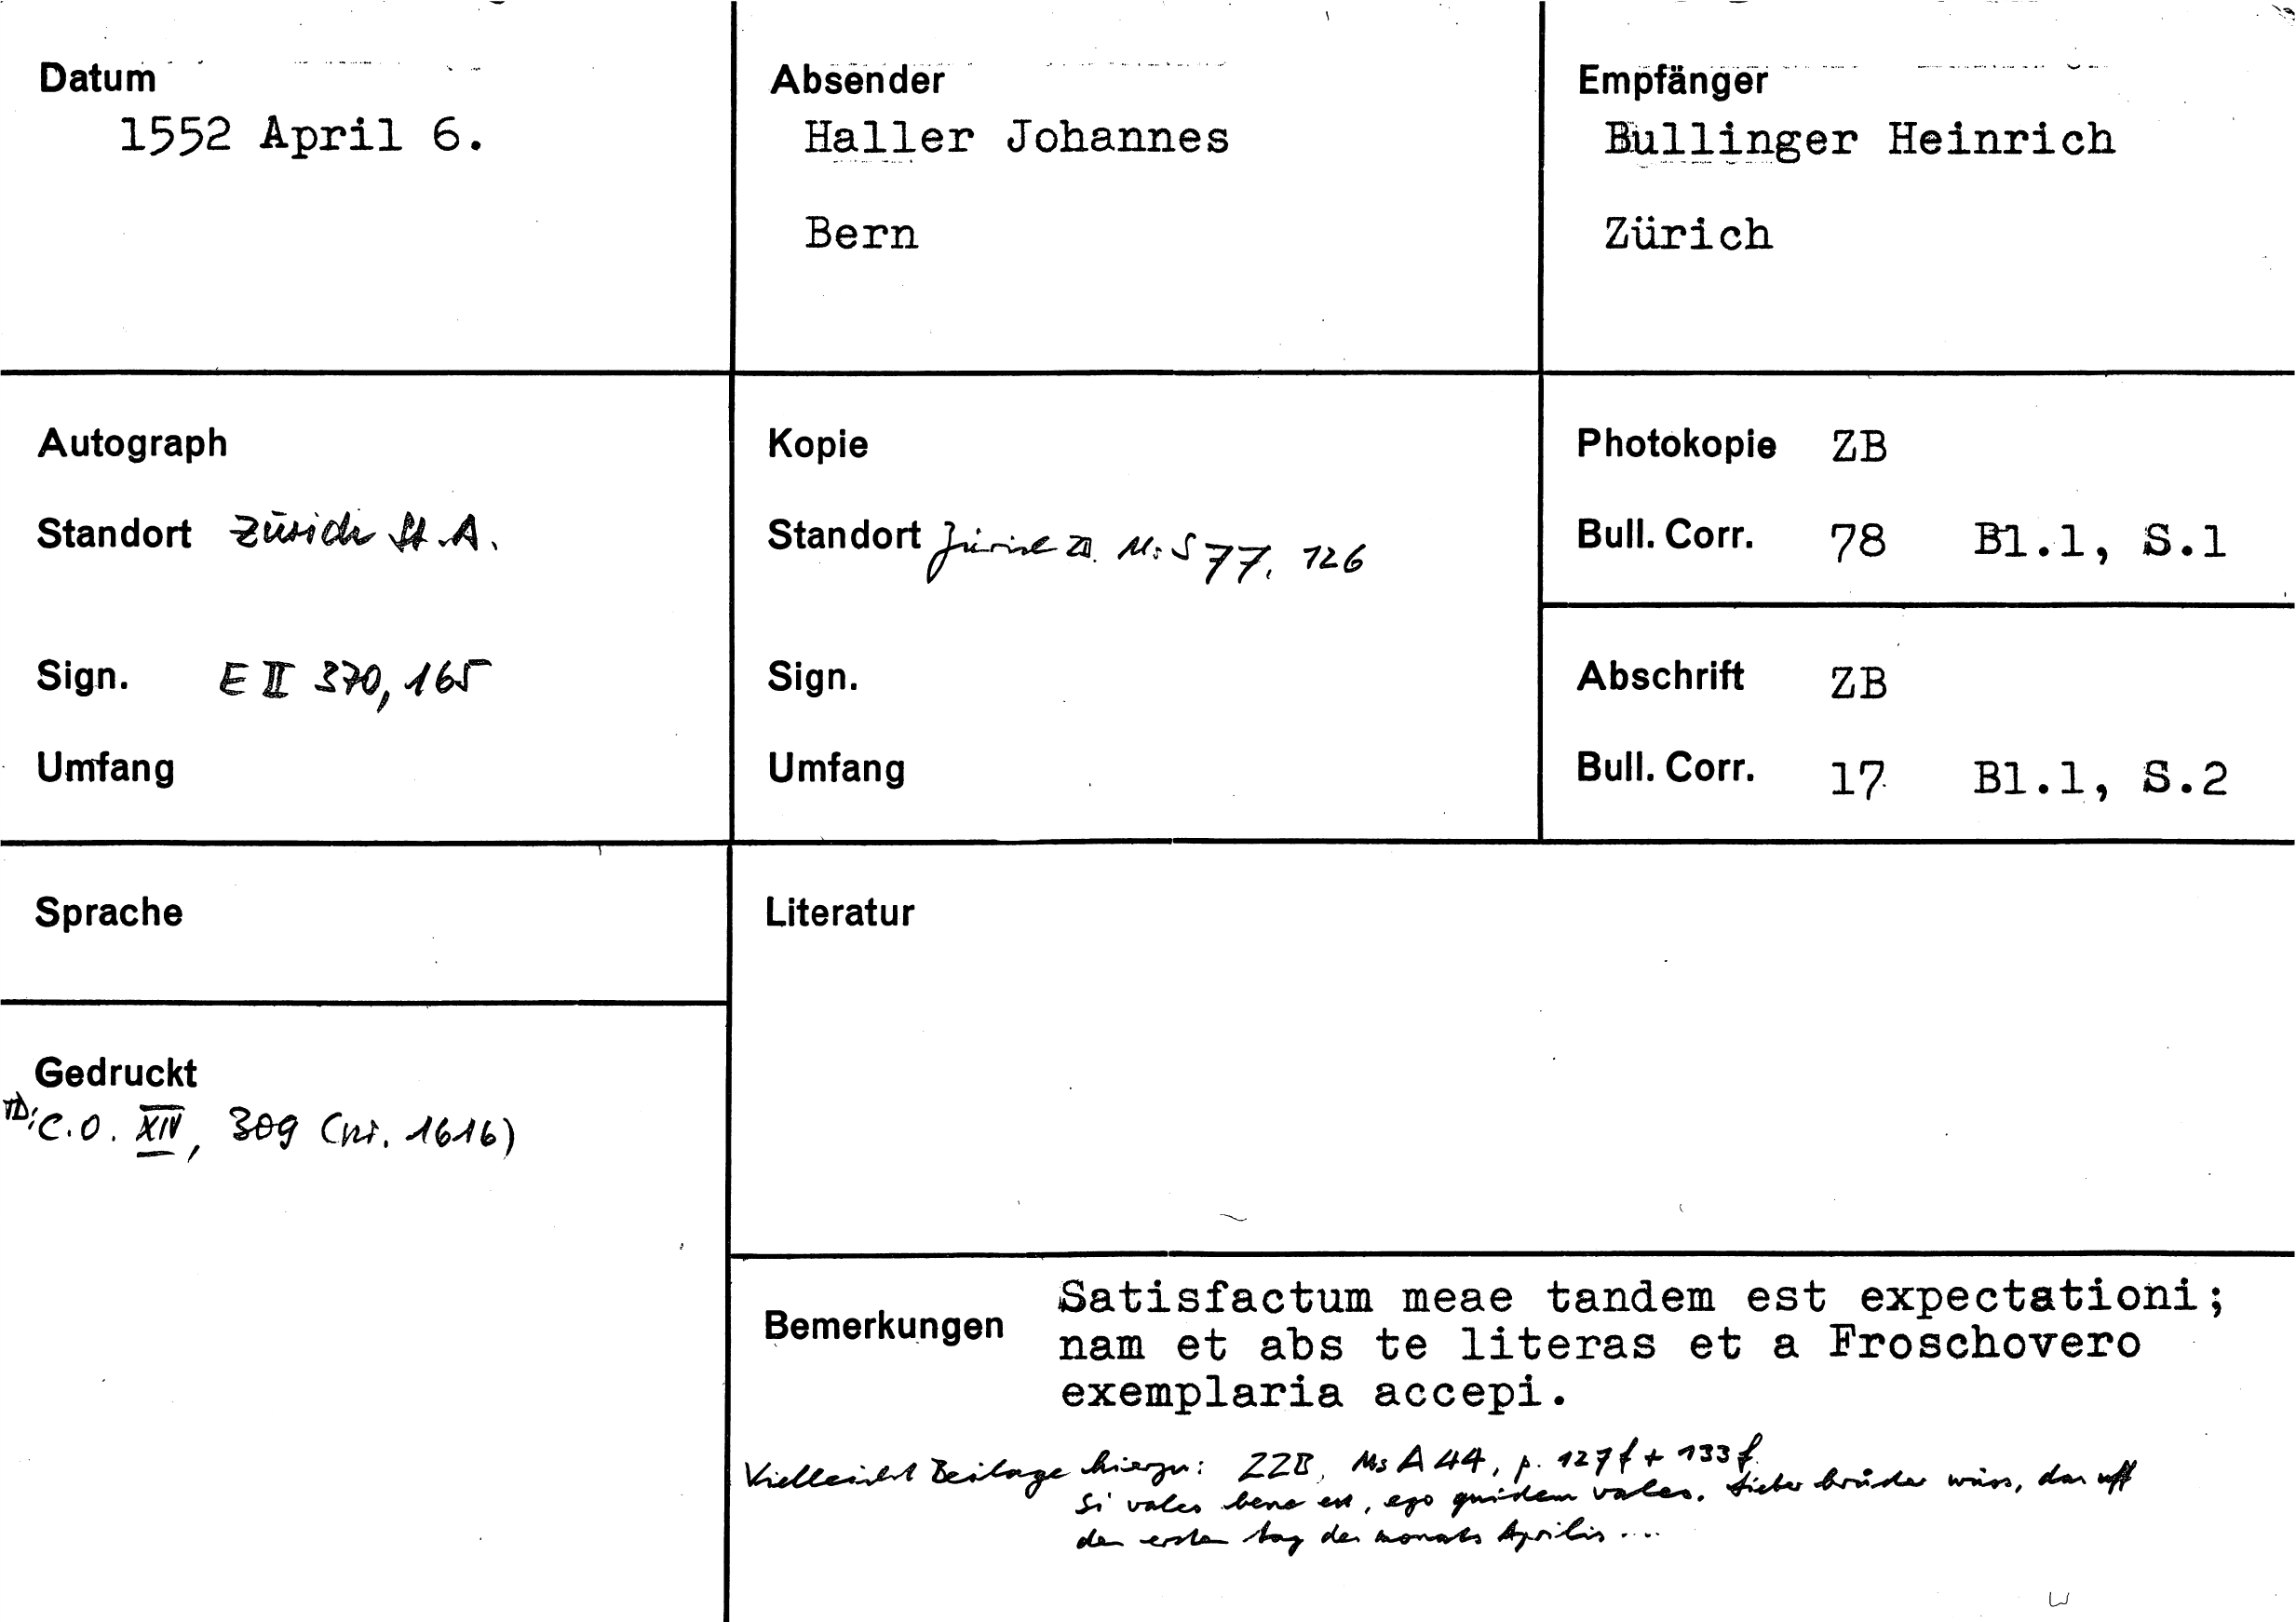 Datum
1552 April 6.
Absender
Haller Johannes
Bern
Empfänger
Bullinger Heinrich
Zürich
Autograph
Standort Zürich St.A.
Sign. E II 370, 165
Umfang
Kopie
Standort Zürich ZB. Ms S 77, 126
Sign.
Umfang
Photokopie ZB
Bull. Corr. 78 Bl.1, S.1
Abschrift ZB
Bull. Corr. 17 Bl.1, S.2
Sprache
Gedruckt
TD: C.O. XIV, 309 (nr. 1616)
Literatur
Bemerkungen
Satisfactum meae tandem est expectationi;
nam et abs te literas et a Froschovero
exemplaria accepi.
Vielleicht Beilage hierzu: ZZB, Ms A 44, p. 127 f + 133 f.
Si vales bene est, ego quidem valeo. Lieber brůder wüss, das uff
den ersten tag des monats Aprilis ....